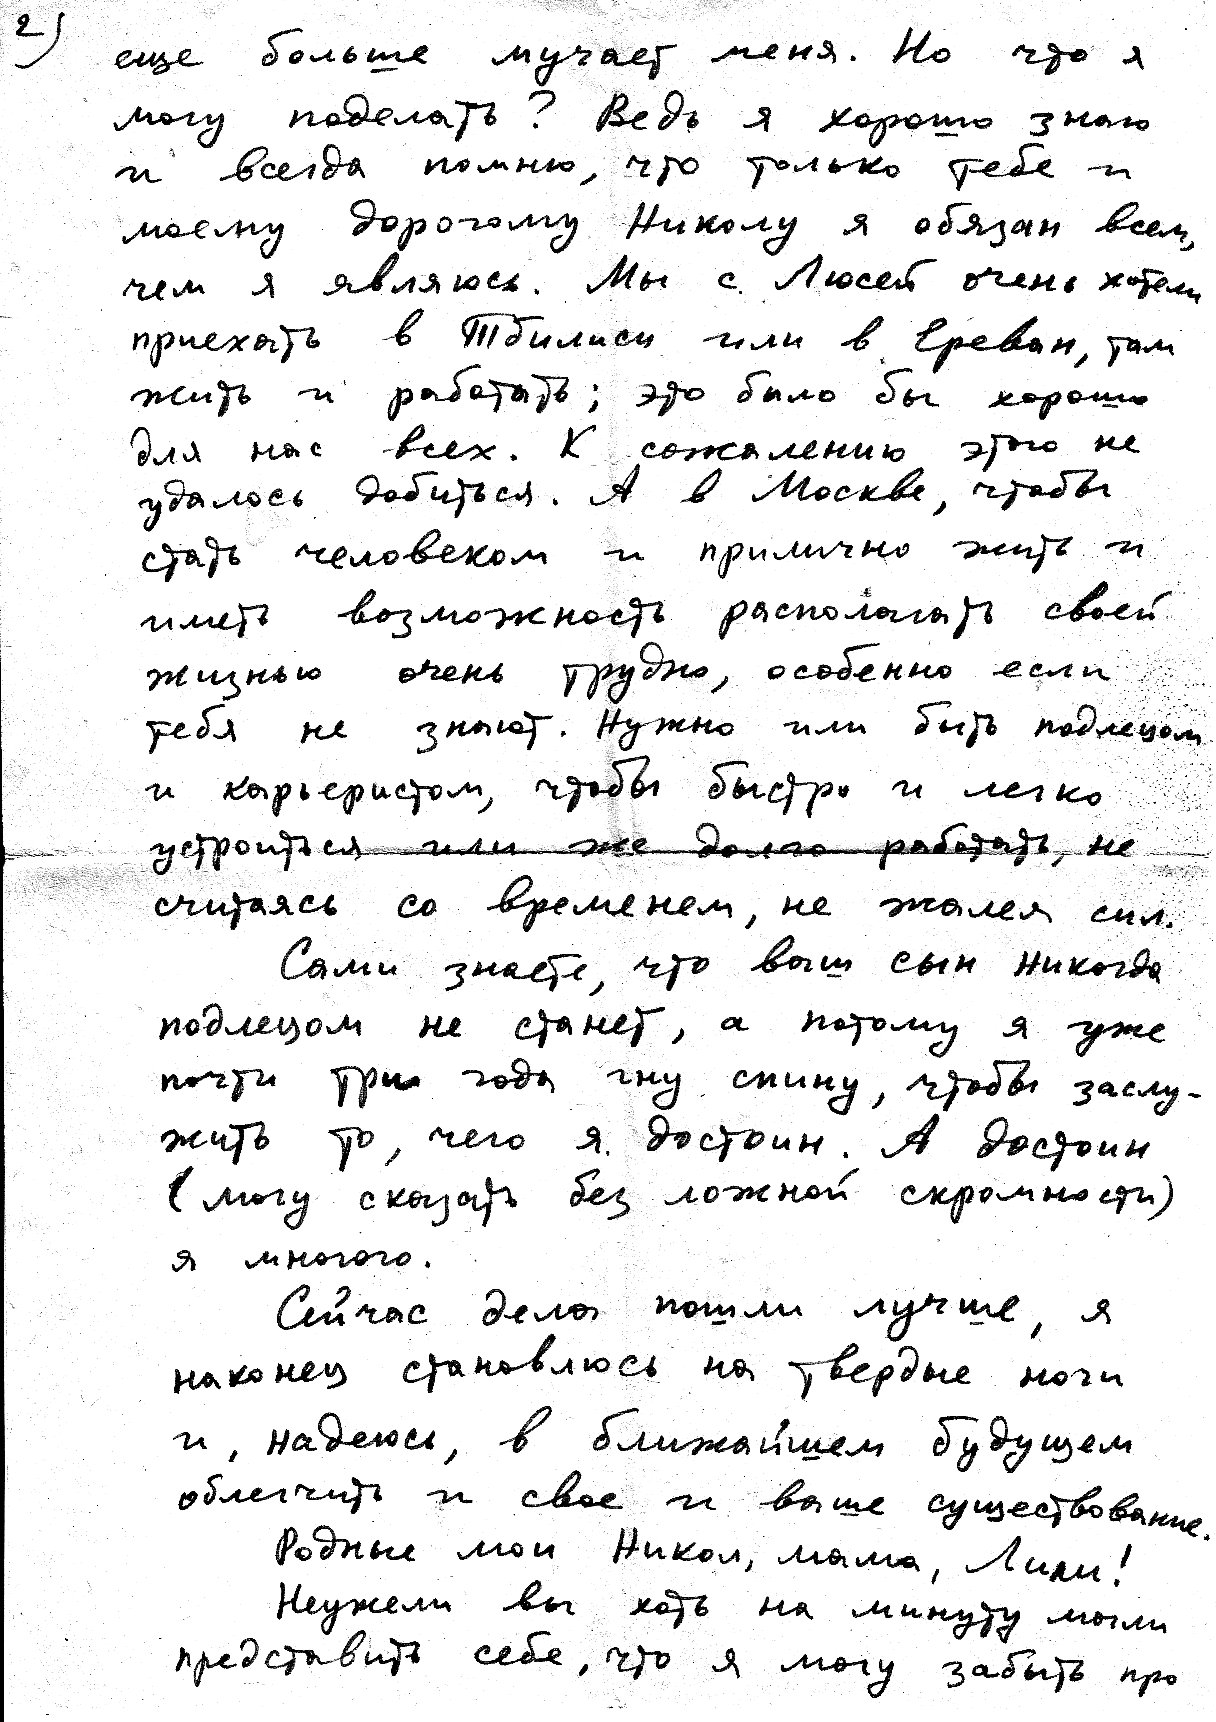 2)
еще больше мучает меня. Но что я
могу поделать? Ведь я хорошо знаю
и всегда помню, что только тебе и
моему дорогому Николу я обязан всем,
чем я являюсь. Мы с Люсей очень хотели
приехать в Тбилиси или в Ереван, там
жить и работать; это было бы хорошо
для нас всех. К сожалению этого не
удалось добиться. А в Москве, чтобы
стать человеком и прилично жить и
иметь возможность располагать своей
жизнью очень трудно, особенно если
тебя не знают. Нужно или быть подлецом
и карьеристом, чтобы быстро и легко
устроиться или же долго работать, не
считаясь со временем, не жалея сил.
Сами знаете, что ваш сын никогда
подлецом не станет, а потому я уже
почти три года гну спину, чтобы заслу-
жить то, чего я достоин. А достоин
(могу сказать без ложной скромности)
я многого.
Сейчас дела пошли лучше, я
наконец становлюсь на твердые ноги
и, надеюсь, в ближайшем будущем
облегчить и свое и ваше существование.
Родные мои Никол, мама, Лили!
Неужели вы хоть на минуту могли
представить себе, что я могу забыть про